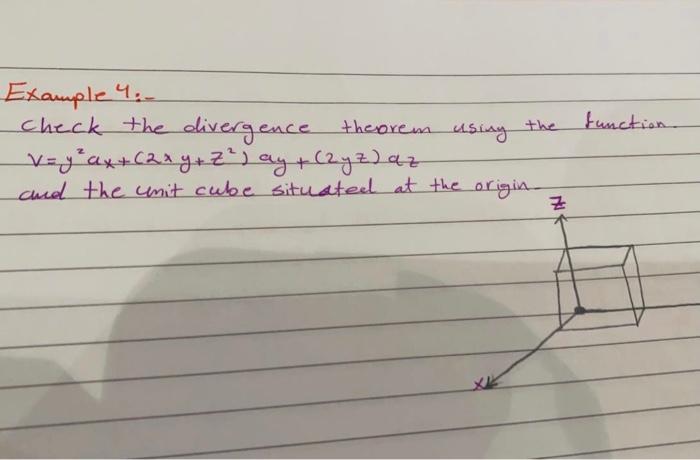 Example 4:-
Check the divergence theorem using the function
V = y²ax + (2xy + z²) ay + (2yz) az
and the unit cube situated at the origin-
Z
X